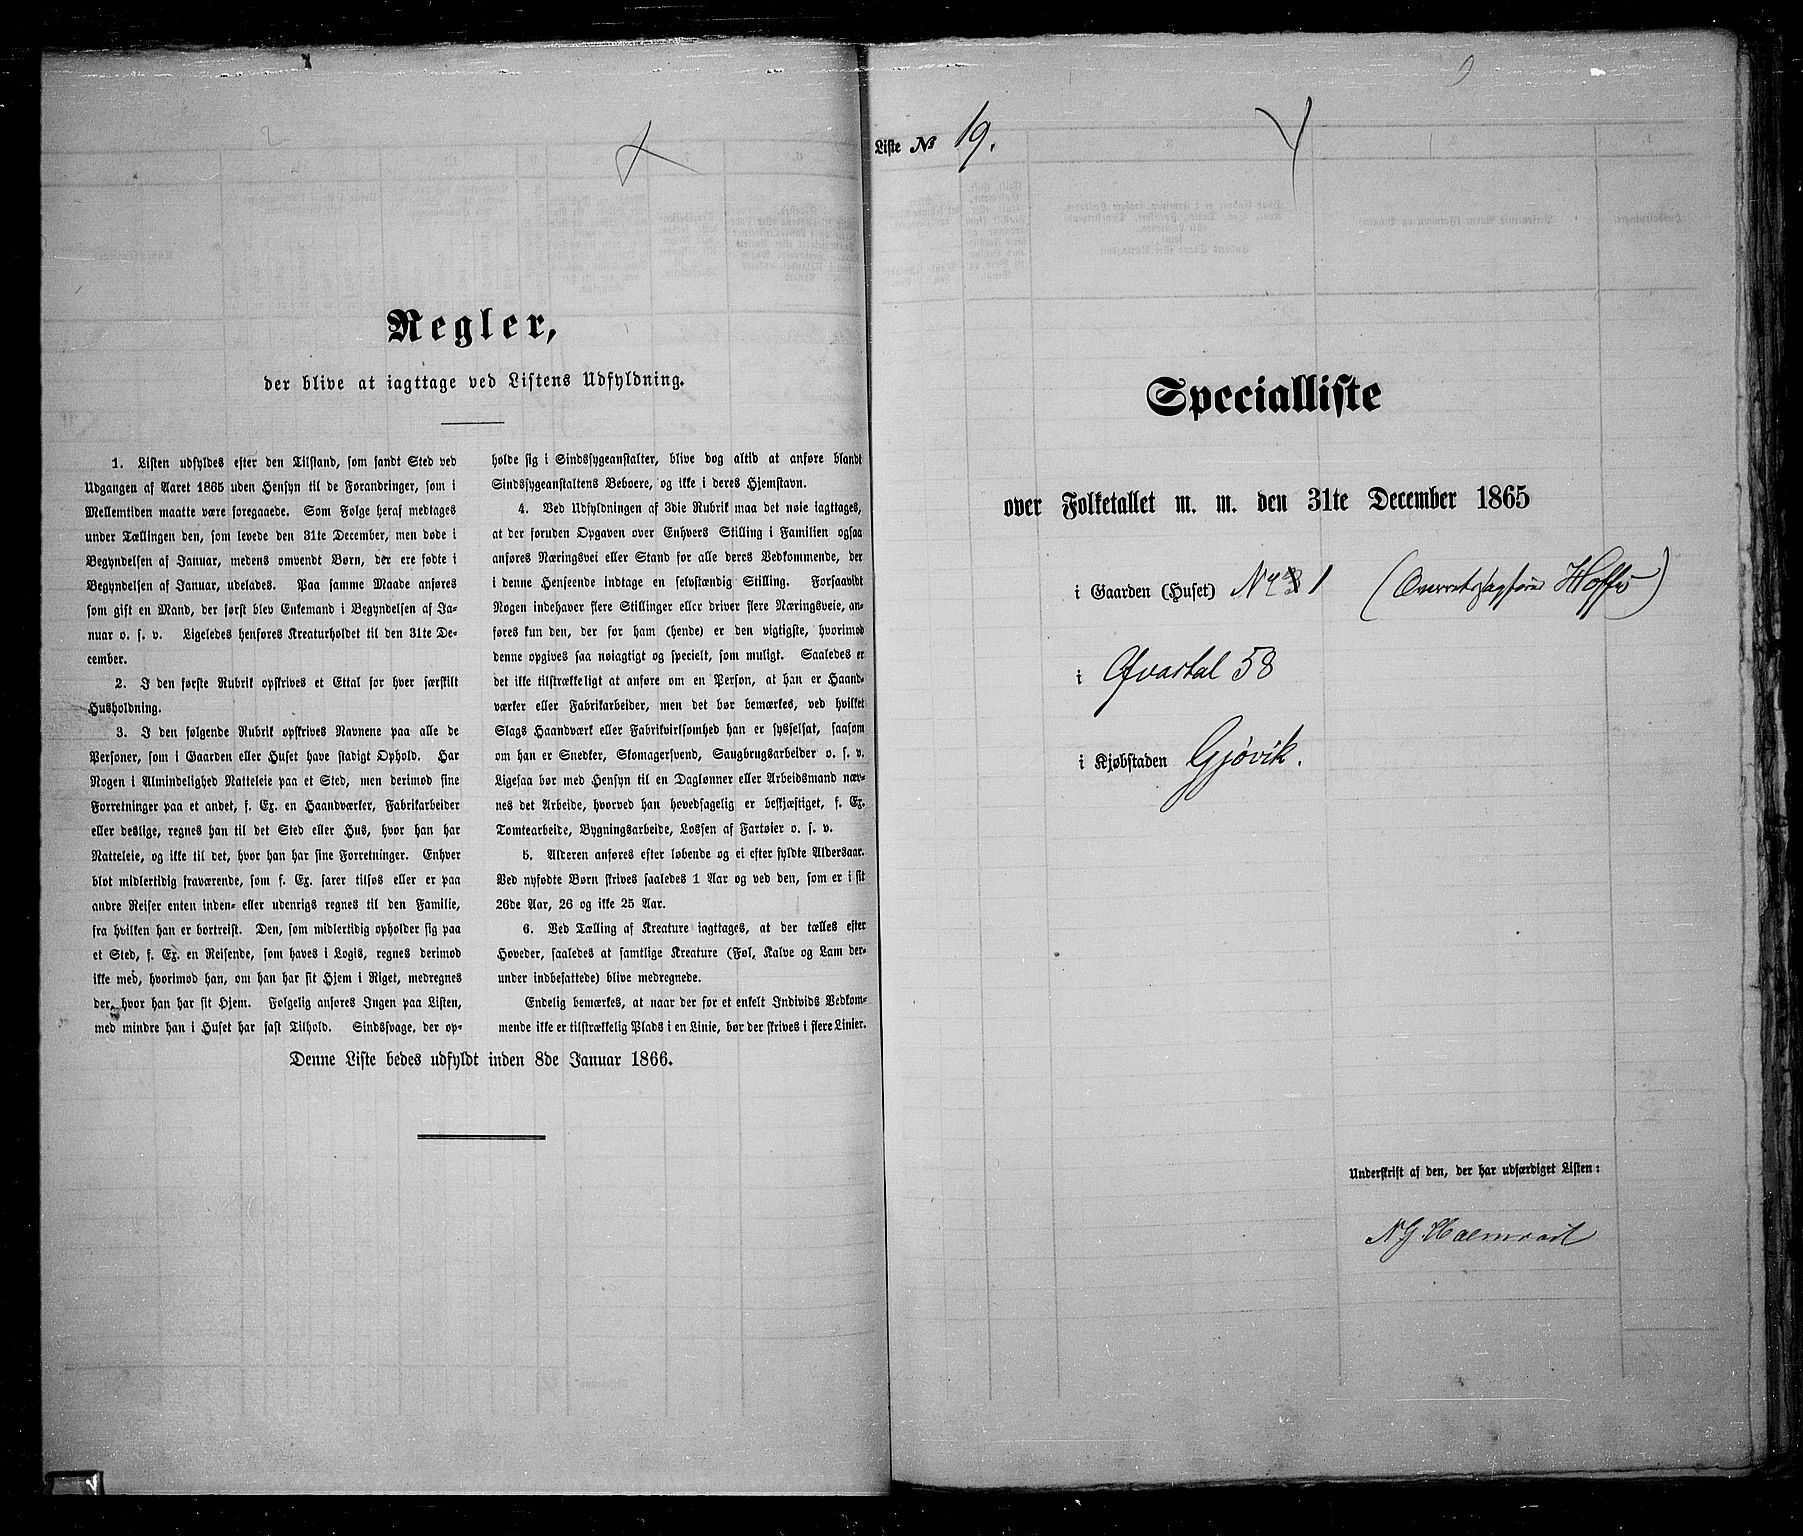 Regler,
der blive at iagttage ved Listens Udfyldning.
1. Listen udfyldes efter den Tilstand, som fandt Sted ved
Udgangen af Aaret 1865 uden Hensyn til de Forandringer, som i
Mellemtiden maatte være foregaaede. Som Følge heraf medtages
under Tællingen den, som levede den 31te December, men døde i
Begyndelsen af Januar, medens omvendt Børn, der ere fødte i
Begyndelsen af Januar, udelades. Paa samme Maade anføres
som gift en Mand, der først blev Enkemand i Begyndelsen af Ja-
nuar o. s. v. Ligeledes henføres Kreaturholdet til den 31te De-
cember.
2. I den første Rubrik opskrives et Ettal for hver særskilt
Husholdning.
3. I den følgende Rubrik opskrives Navnene paa alle de
Personer, som i Gaarden eller Huset have stadigt Ophold. Har
Nogen i Almindelighed Natteleie paa et Sted, men derimod sine
Forretninger paa et andet, f. Ex. en Haandværker, Fabrikarbeider
eller deslige, regnes han til det Sted eller Hus, hvor han har
Natteleie, og ikke til det, hvor han har sine Forretninger. Enhver
blot midlertidig fraværende, som f. Ex. farer tilsøs eller er paa
andre Reiser enten inden- eller udenrigs regnes til den Familie,
fra hvilken han er bortreist. Den, som midlertidig opholder sig paa
et Sted, f. Ex. en Reisende, som haves i Logis, regnes derimod
ikke med, hvorimod han, om han har sit Hjem i Riget, medregnes
der, hvor han har sit Hjem. Følgelig anføres Ingen paa Listen,
med mindre han i Huset har fast Tilhold. Sindssvage, der op-
holde sig i Sindssygeanstalter, blive dog altid at anføre blandt
Sindssygeanstaltens Beboere, og ikke i deres Hjemstavn.
4. Ved Udfyldningen af 3die Rubrik maa det nøie iagttages,
at der foruden Opgaven over Enhvers Stilling i Familien ogsaa
anføres Næringsvei eller Stand for alle deres Vedkommende, der
i denne Henseende indtage en selvstændig Stilling. Forsaavidt
Nogen indehaver flere Stillinger eller driver flere Næringsveie, an-
føres kun den, der for ham (hende) er den vigtigste, hvorimod
denne opgives saa nøiagtigt og specielt, som muligt. Saaledes er
det ikke tilstrækkeligt at anføre om en Person, at han er Haand-
værker eller Fabrikarbeider, men det bør bemærkes, ved hvilket
Slags Haandværk eller Fabrikvirksomhed han er sysselsat, saasom
om han er Snedker, Skomagersvend, Saugbrugsarbeider o. s. v.
Ligesaa bør med Hensyn til en Daglønner eller Arbeidsmand næv-
nes det Arbeide, hvorved han hovedsagelig er beskjæftiget, f. Ex.
Tomtearbeide, Bygningsarbeide, Lossen af Fartøier o. s. v.
5. Alderen anføres efter løbende og ei efter fyldte Aldersaar.
Ved nyfødte Børn skrives saaledes 1 Aar og ved den, som er i sit
26de Aar, 26 og ikke 25 Aar.
6. Ved Tælling af Kreature iagttages, at der tælles efter
Hoveder, saaledes at samtlige Kreature (Føl, Kalve og Lam der-
under indbefattede) blive medregnede.
Endelig bemærkes, at naar der for et enkelt Individs Vedkom-
mende ikke er tilstrækkelig Plads i en Linie, bør der skrives i flere Linier.
Denne Liste bedes udfyldt inden 8de Januar 1866.
Liste № 19.
Specialliste
over Folketallet m. m. den 31te December 1865
i Gaarden (Huset) 1 (Overretssagfører Hoffs)
i Qvartal 58
i Kjøbstaden Gjøvik.
Underskrift af den, der har udfærdiget Listen:
NG Halmrast